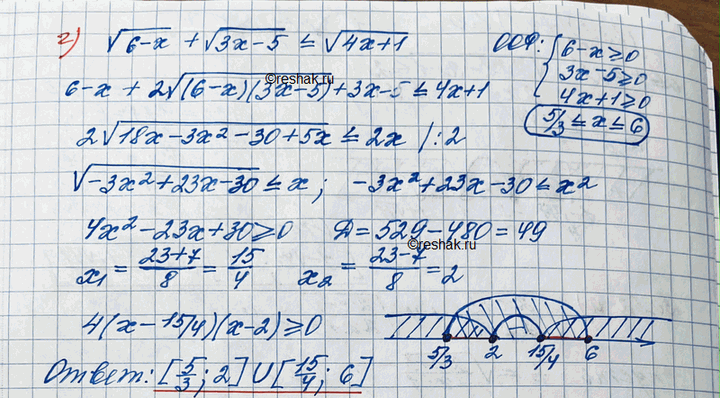 2) √(6-x) + √(3x-5) ≤ √(4x+1) ООФ: { 6-x≥0
3x-5≥0
4x+1≥0
5/3 ≤ x ≤ 6
©reshak.ru
6-x + 2√((6-x)(3x-5)) + 3x-5 ≤ 4x+1
2√(18x-3x²-30+5x) ≤ 2x /:2
√(-3x²+23x-30) ≤ x; -3x²+23x-30 ≤ x²
4x²-23x+30≥0 D=529-480=49
©reshak.ru
x₁ = (23+7)/8 = 15/4 x₂ = (23-7)/8 = 2
4(x-15/4)(x-2)≥0
5/3 2 15/4 6
Ответ: [5/3; 2] U [15/4; 6]